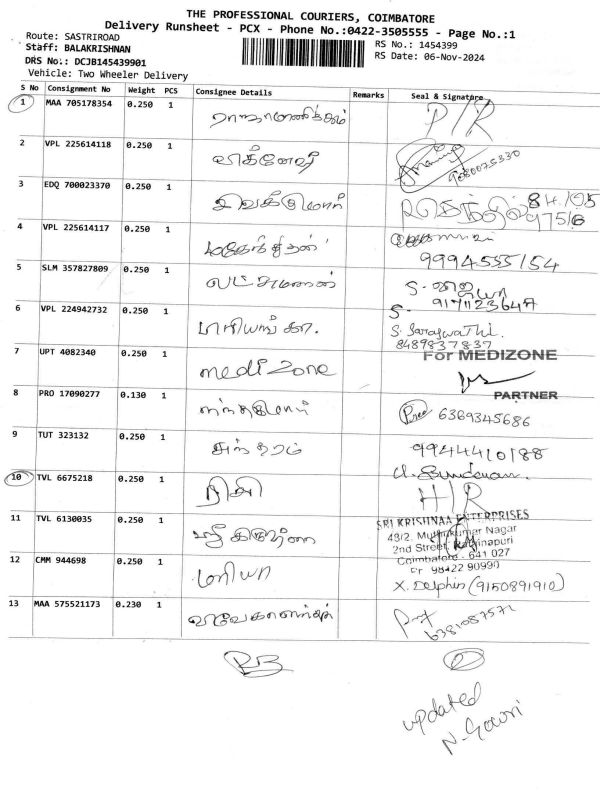 THE PROFESSIONAL COURIERS, COIMBATORE
Delivery Runsheet - PCX - Phone No.:0422-3505555 - Page No.:1
Route: SASTRIROAD
RS No.: 1454399
Staff: BALAKRISHNAN
RS Date: 06-Nov-2024
DRS No.: DCJB145439901
Vehicle: Two Wheeler Delivery
S No Consignment No Weight PCS Consignee Details Remarks Seal & Signature
1 MAA 705178354 0.250 1 P/R
2 VPL 225614118 0.250 1 விக்னேஷ்
9080075330
3 EDQ 700023370 0.250 1
4 VPL 225614117 0.250 1 மகேந்திரன்
9994555154
5 SLM 357827809 0.250 1 லட்சுமணன்
6 VPL 224942732 0.250 1 S. Saraswathi.
8489837837
7 UPT 4082340 0.250 1 medizone For MEDIZONE
PARTNER
8 PRO 17090277 0.130 1 6369345686
9 TUT 323132 0.250 1 சுந்தரம் 9944410188
10 TVL 6675218 0.250 1 நிதி H/R
11 TVL 6130035 0.250 1 ஸ்ரீ கிருஷ்ணா SRI KRISHNAA ENTERPRISES
43/2, Muthukumar Nagar
2nd Street, Rathinapuri
Coimbatore - 641 027
98422 90990
12 CMM 944698 0.250 1 மரியா X. Delphin (9150891910)
13 MAA 575521173 0.230 1 விவேகானந்தன்
6381087571
updated
N. Gowri